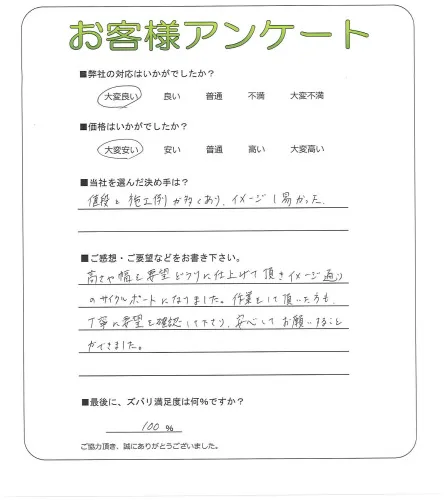 お客様アンケート
■弊社の対応はいかがでしたか？
大変良い 良い 普通 不満 大変不満
■価格はいかがでしたか？
大変安い 安い 普通 高い 大変高い
■当社を選んだ決め手は？
値段と施工例が多くあり、イメージし易かった。
■ご感想・ご要望などをお書き下さい。
高さや幅も要望どうりに仕上げて頂きイメージ通り
のサイクルポートになりました。作業をして頂いた方も、
丁寧に要望を確認して下さり、安心してお願いすること
ができました。
■最後に、ズバリ満足度は何％ですか？
100 ％
ご協力頂き、誠にありがとうございました。